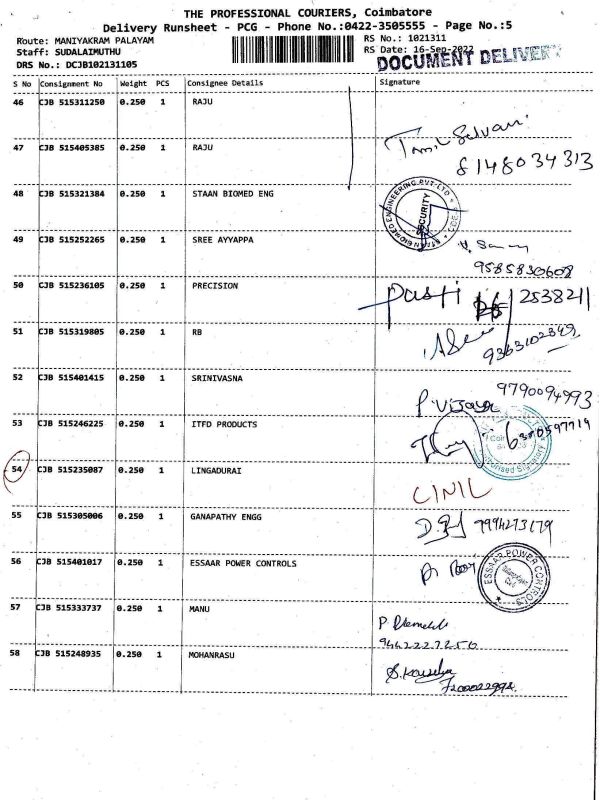 THE PROFESSIONAL COURIERS, Coimbatore
Delivery Runsheet - PCG - Phone No.:0422-3505555 - Page No.:5
Route: MANIYAKRAM PALAYAM
RS No.: 1021311
Staff: SUDALAIMUTHU
RS Date: 16-Sep-2022
DRS No.: DCJB102131105
DOCUMENT DELIVERY
S No Consignment No Weight PCS Consignee Details Signature
46 CJB 515311250 0.250 1 RAJU
Tamil Selvani
47 CJB 515405385 0.250 1 RAJU
8148034313
48 CJB 515321384 0.250 1 STAAN BIOMED ENG
STAAN BIOMED ENGINEERING PVT LTD
SECURITY
49 CJB 515252265 0.250 1 SREE AYYAPPA
9585830608
50 CJB 515236105 0.250 1 PRECISION
2538211
51 CJB 515319805 0.250 1 RB
9363102349
52 CJB 515401415 0.250 1 SRINIVASNA
9790094993
P. Vijaya
53 CJB 515246225 0.250 1 ITFD PRODUCTS
6380597719
Authorised Signatory
54 CJB 515235087 0.250 1 LINGADURAI
CINIL
55 CJB 515305006 0.250 1 GANAPATHY ENGG
7994273179
56 CJB 515401017 0.250 1 ESSAAR POWER CONTROLS
ESSAAR POWER CONTROLS
57 CJB 515333737 0.250 1 MANU
9442227250
58 CJB 515248935 0.250 1 MOHANRASU
7200022992